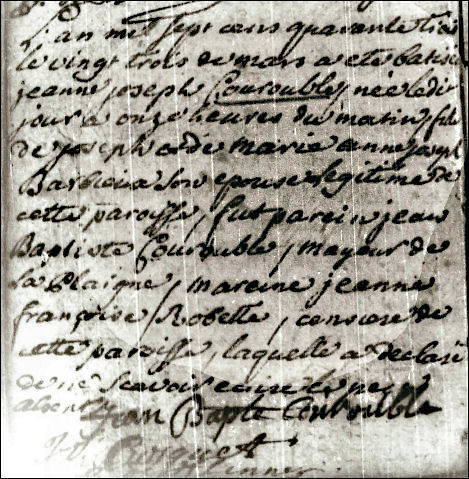 L'an mil sept cens quarante trois
le vingt trois de mars a ete batisé
jeanne joseph Courouble, née le dit
jour a onze heures du matin, fils
de joseph et de marie anne joseph
Barbieux son epouse legitime de
cette paroisse, fut parein jean
Baptiste Courouble, mayeur de
la Plaigne, mareine jeanne
françoise Robette, censiere de
cette paroisse, laquelle a declaré
de ne scavoir ecrire le pere
absent Jean Bapte Courouble